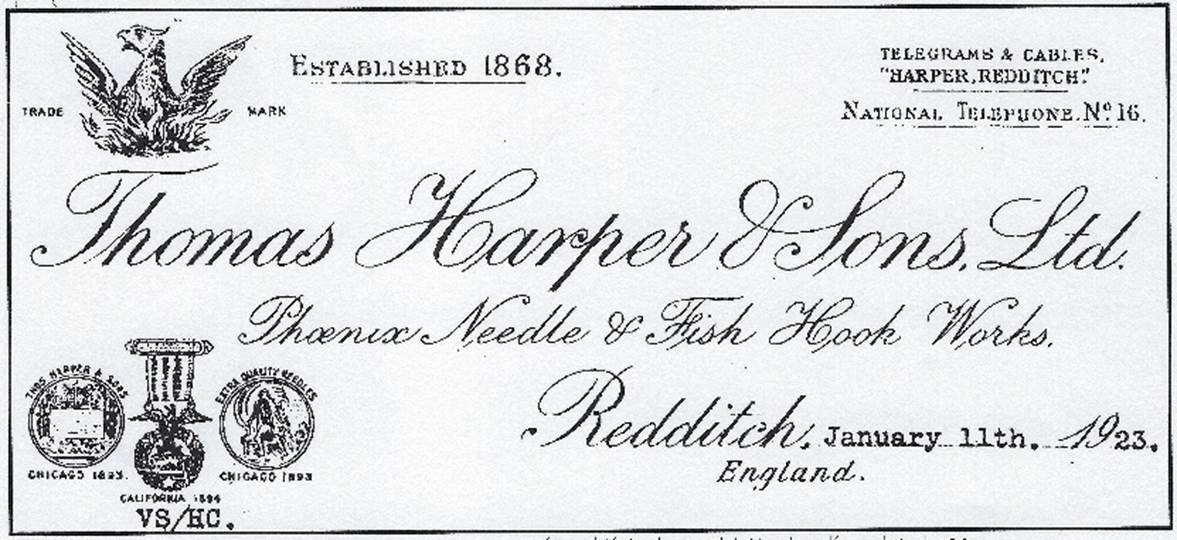 ESTABLISHED 1868.
TELEGRAMS & CABLES.
"HARPER, REDDITCH."
NATIONAL TELEPHONE. Nº 16.
TRADE MARK
Thomas Harper & Sons. Ltd.
Phœnix Needle & Fish Hook Works.
THOS HARPER & SONS
EXTRA QUALITY NEEDLES
Redditch. January 11th. 1923.
England.
CHICAGO 1893.
CHICAGO 1893
CALIFORNIA 1894
VS/HC.